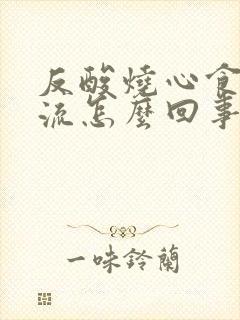 反酸燒心食
流怎麼回事
一味鈴蘭